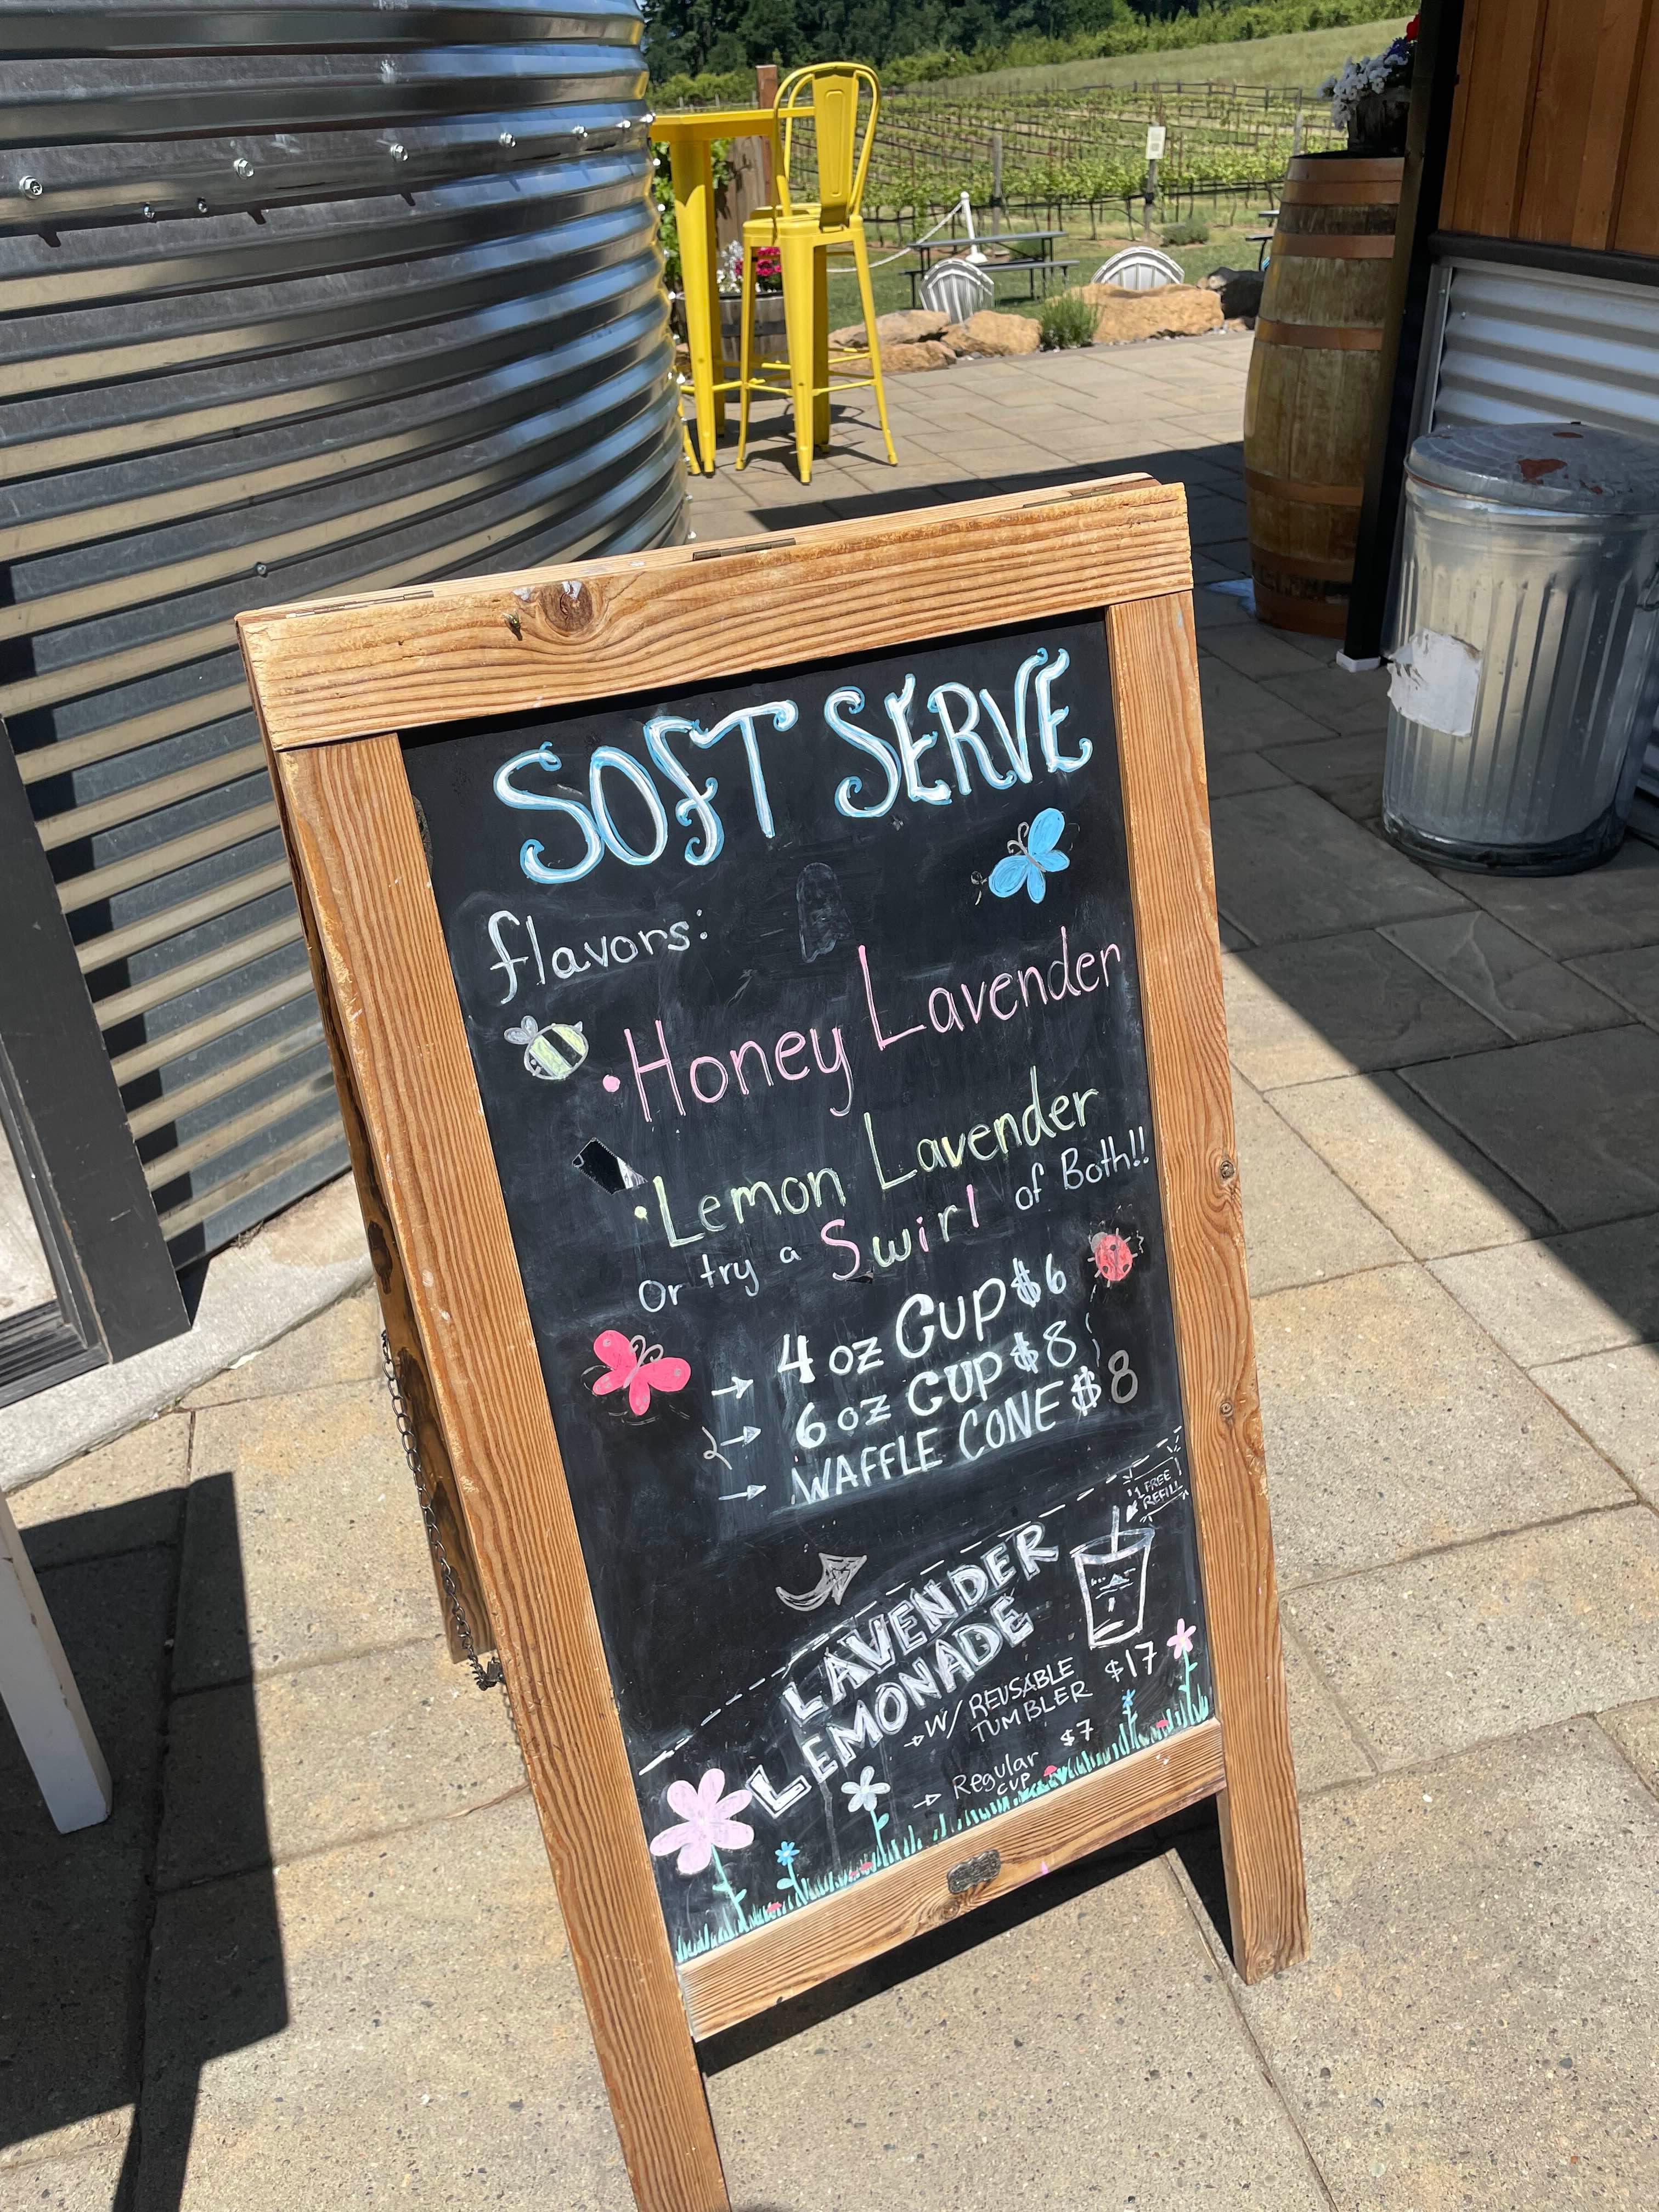 SOFT SERVE
flavors:
• Honey Lavender
• Lemon Lavender
Or try a Swirl of Both!!
→ 4 oz CUP $6
→ 6 oz CUP $8
→ WAFFLE CONE $8
1 FREE
REFILL
LAVENDER
LEMONADE
→ W/ REUSABLE
TUMBLER $17
→ Regular
CUP $7